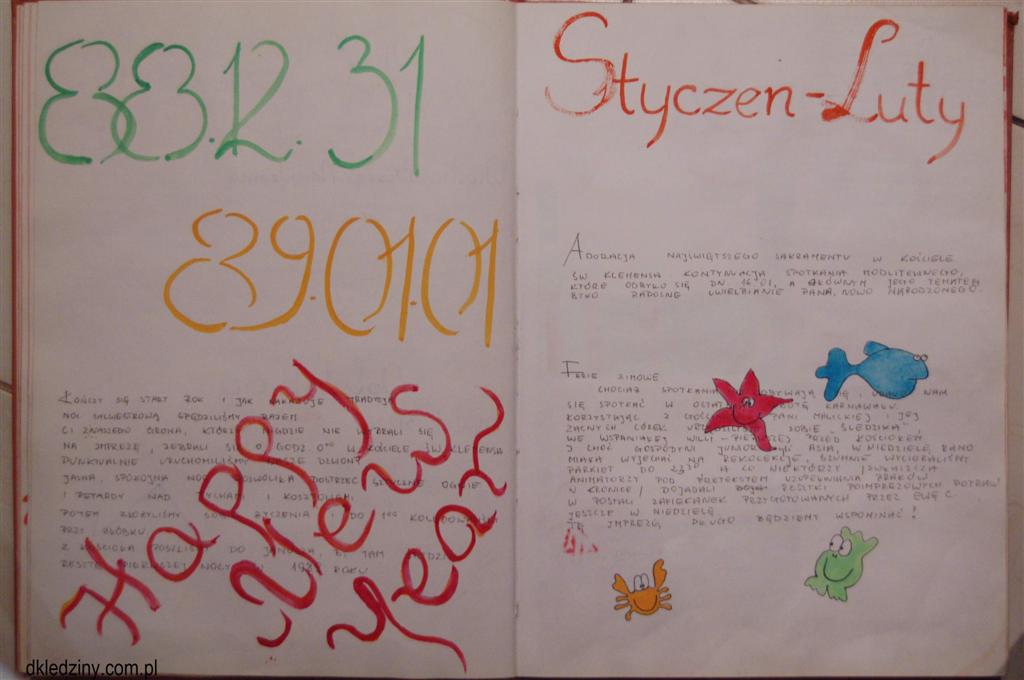 88.12.31
89.01.01
KOŃCZY SIĘ STARY ROK I JAK NAKAZUJE TRADYCJA
NOC SYLWESTROWĄ SPĘDZILIŚMY RAZEM
CI Z NASZEGO GRONA, KTÓRZY NIGDZIE NIE WYBRALI SIĘ
NA IMPREZĘ, ZEBRALI SIĘ O GODZ. 0⁰⁰ W KOŚCIELE ŚW KLEMENSA
PUNKTUALNIE URUCHOMILIŚMY NASZE DZWONY
JASNA, SPOKOJNA NOC POZWOLIŁA DOSTRZEC SZTUCZNE OGNIE
I PETARDY NAD TYCHAMI I KOSZTOWAMI.
POTEM ZŁOŻYLIŚMY SOBIE ŻYCZENIA I DO 1⁰⁰ KOLĘDOWALIŚMY
PRZY ŻŁÓBKU.
Z KOŚCIOŁA POSZLIŚMY DO JANUSZA, BY TAM SPĘDZIĆ
RESZTĘ PIERWSZEJ NOCY W 1989 ROKU
Happy
New
Year
Styczen-Luty
ADORACJA NAJŚWIĘTSZEGO SAKRAMENTU W KOŚCIELE
ŚW KLEMENSA KONTYNUACJA SPOTKANIA MODLITEWNEGO,
KTÓRE ODBYŁO SIĘ DN 16.01, A GŁÓWNYM JEGO TEMATEM
BYŁO RADOSNE UWIELBIANIE PANA, NOWO NARODZONEGO.
FERIE ZIMOWE
CHOCIAŻ SPOTKANIA ODBYWAJĄ SIĘ I NAM
SIĘ SPOTKAĆ W OSTATNIĄ SOBOTĘ KARNAWAŁU.
KORZYSTAJĄC Z GOŚCINNOŚCI PANI MALICKIEJ I JEJ
ZACNYCH CÓREK URZĄDZILIŚMY SOBIE „ŚLEDZIKA"
WE WSPANIAŁEJ WILLI - PIERWSZEJ PRZED KOŚCIOŁEM
I CHOĆ GOSPODYNI JUNIORKA CZYLI ASIA, W NIEDZIELĘ RANO
MIAŁA WYJECHAĆ NA REKOLEKCJE, DZIELNIE WYCIERALIŚMY
PARKIET DO 23³⁰ A CO NIEKTÓRZY /ZWŁASZCZA
ANIMATORZY POD PRETEKSTEM UZUPEŁNIENIA BRAKÓW
W KRONICE/ DOJADALI RESZTKI POIMPREZOWYCH POTRAW
W POSTACI ZAPIEKANEK PRZYGOTOWANYCH PRZEZ EWĘ C
JESZCZE W NIEDZIELĘ
TĘ IMPREZĘ DŁUGO BĘDZIEMY WSPOMINAĆ!
dkledziny.com.pl